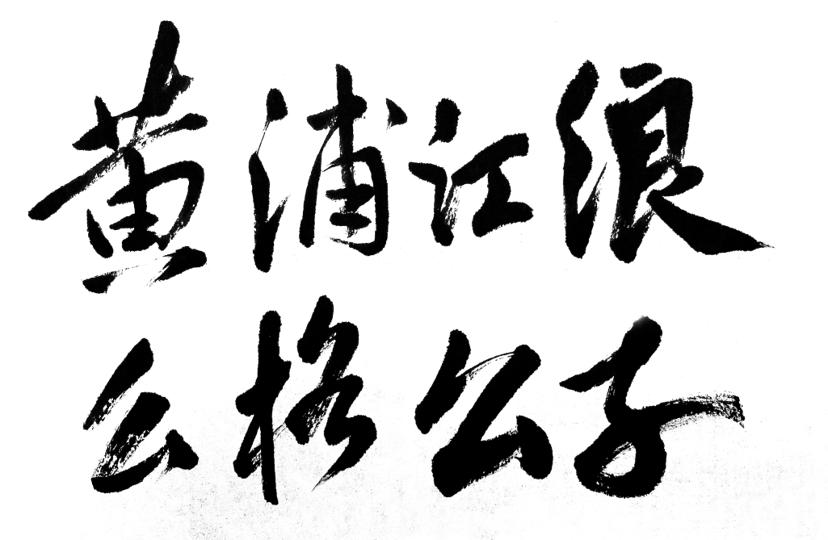 黄浦江浪
么格公子